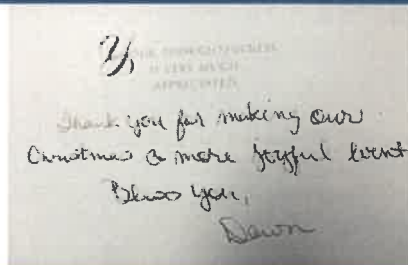 YOUR THOUGHTFULNESS
IS VERY MUCH
APPRECIATED
Thank you for making our
Christmas a more joyful event
Bless you,
Dawn